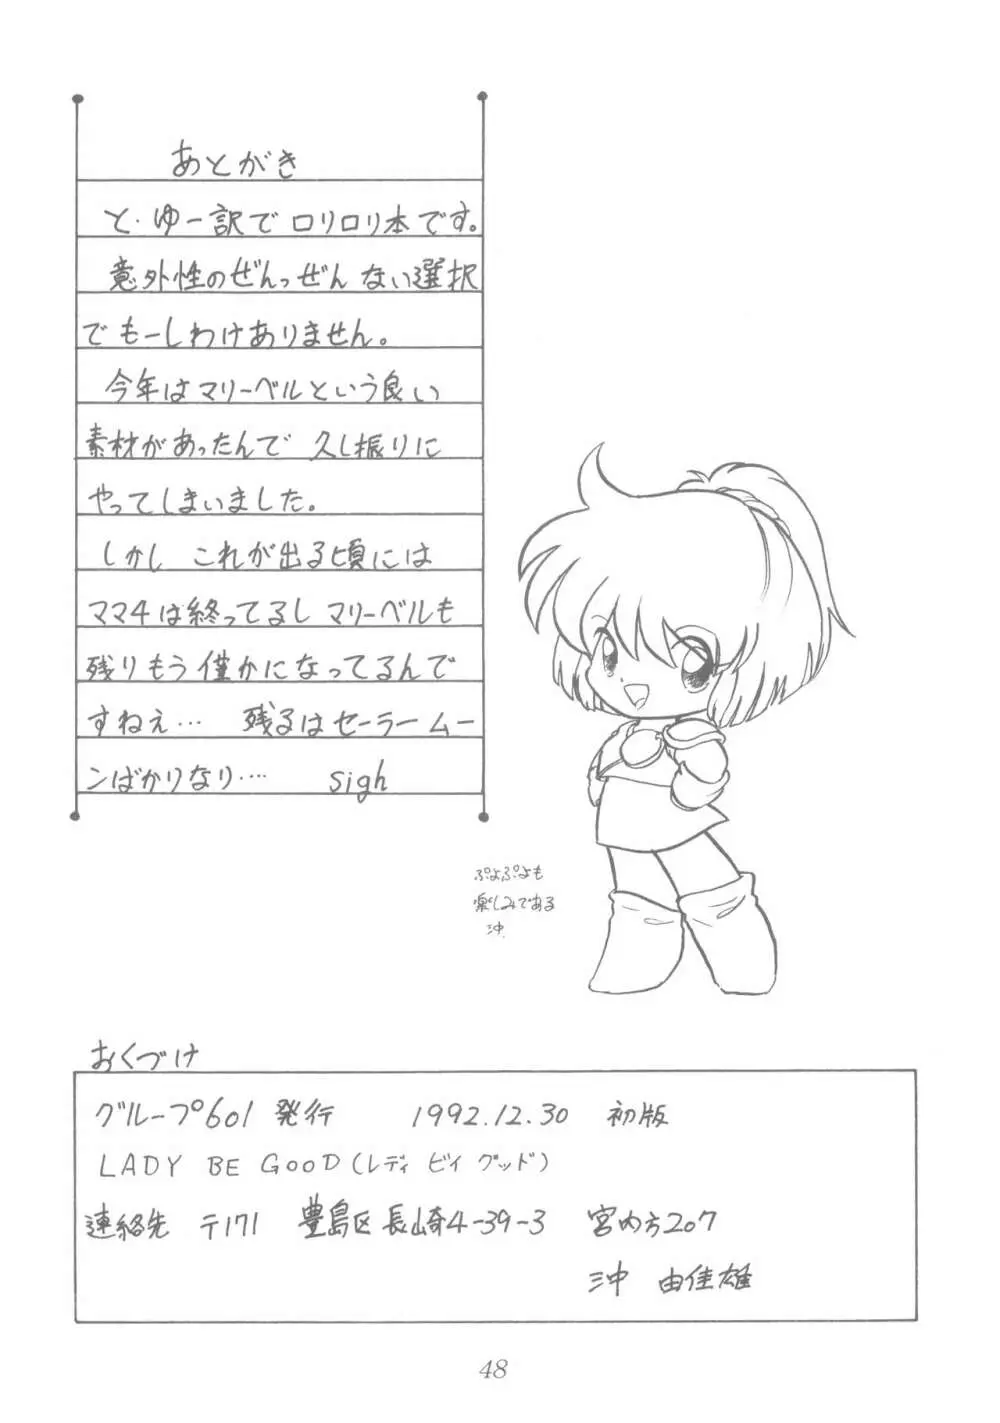 あとがき
と・ゆー訳でロリロリ本です。
意外性のぜんっぜんない選択
でもーしわけありません。
今年はマリーベルという良い
素材があったんで 久し振りに
やってしまいました。
しかし これが出る頃には
ママ4は終ってるし マリーベルも
残りもう僅かになってるんで
すねえ… 残るはセーラームー
ンばかりなり‥‥ sigh
ぷよぷよも
楽しみである
沖
おくづけ
グループ601 発行 1992.12.30 初版
LADY BE GOOD(レディ ビィ グッド)
連絡先 〒171 豊島区長崎4-39-3 宮内方207
沖 由佳雄
48